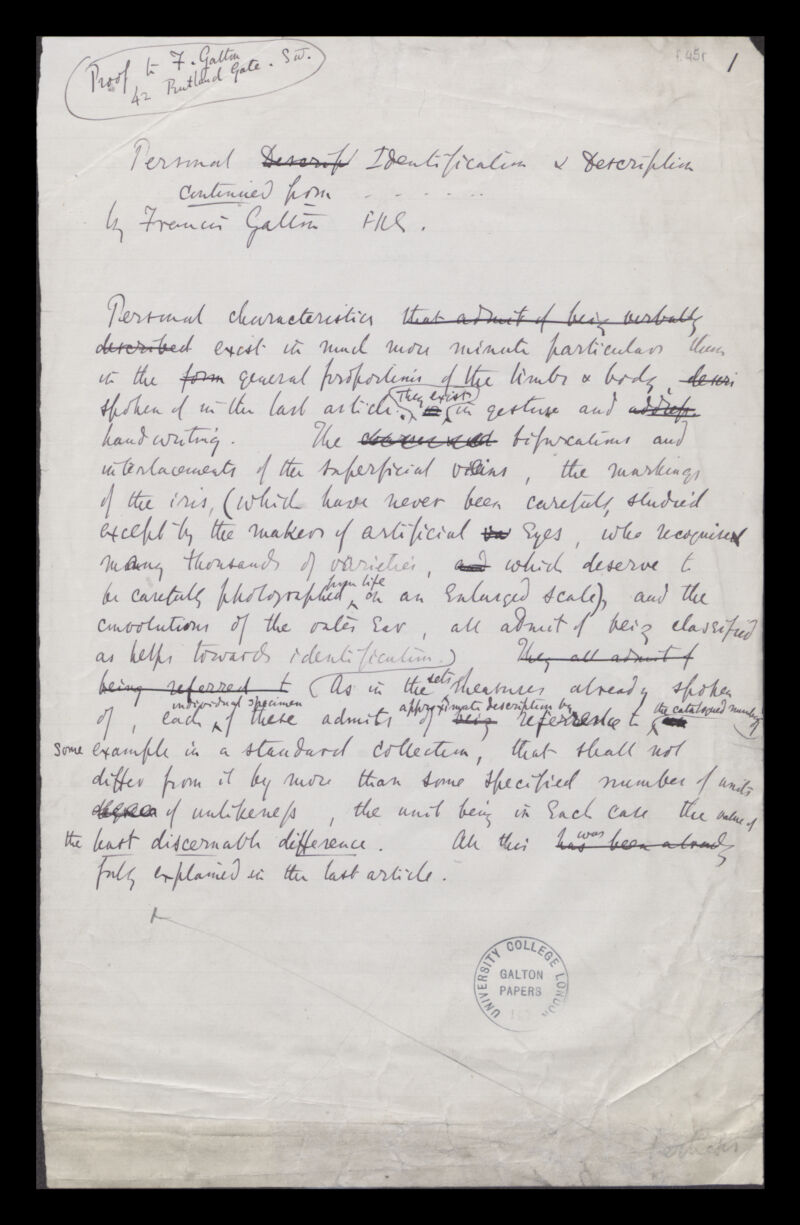 Proof to F. Galton
42 Rutland Gate. SW.
f.45r
1
Personal Descrip Identification & Description
continued from - - - - - -
by Francis Galton FRS.
Personal characteristics that admit of being verbally
described exist in much more minute particulars than
in the form general proportions of the limbs & body, descri
spoken of in the last article. They exist in gesture and address
handwriting. The bifurcations and
interlacements of the superficial veins, the markings
of the iris, (which have never been carefully studied
except by the makers of artificial Eyes, who recognised
many thousands of varieties, and which deserve to
be carefully photographed, from life on an Enlarged scale), and the
convolutions of the outer Ear, all admit of being classified
as helps towards identification.) They all admit of
being referred to (As in the sets measures already spoken
of, each individual specimen of these admits of approximate description by being reference to the catalogued number of
some example in a standard collection, that shall not
differ from it by more than some specified number of units
degree of unlikeness, the unit being in Each case the value of
the least discernable difference. All this was has been already
fully explained in the last article.
UNIVERSITY COLLEGE LONDON
GALTON
PAPERS